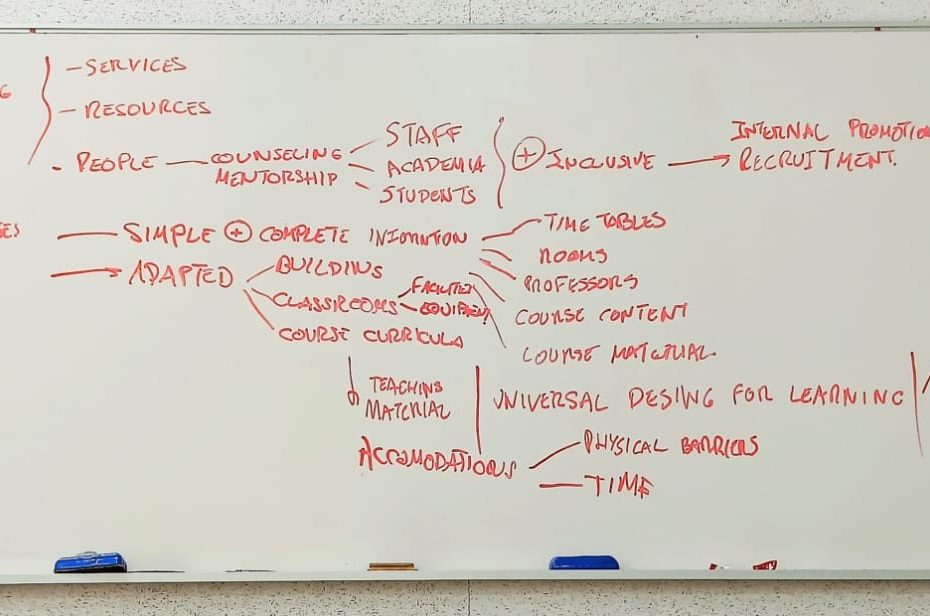 G
- SERVICES
- RESOURCES
- PEOPLE — COUNSELING
MENTORSHIP
STAFF
ACADEMIA
STUDENTS
+ INCLUSIVE → INTERNAL PROMOTIO
RECRUITMENT.
SES
SIMPLE + COMPLETE INFOMATION
TIME TABLES
ROOMS
PROFESSORS
COURSE CONTENT
COURSE MATERIAL
→ ADAPTED
BUILDINS
CLASSROOMS
FACILITIES
EQUIPMENT
COURSE CURRICULA
TEACHINS
MATERIAL
UNIVERSAL DESING FOR LEARNING
ACCOMODATIOUS
PHYSICAL BARRIERS
TIME